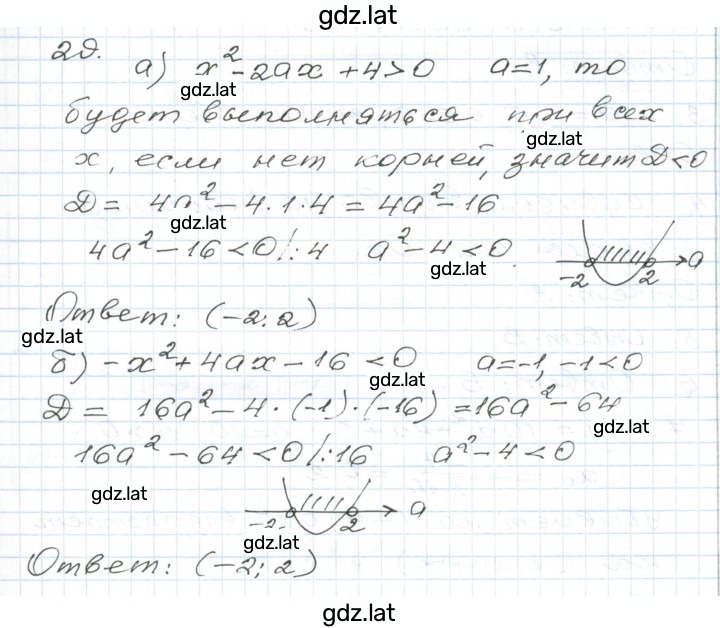 gdz.lat
29.
а) x²-2ax+4>0 a=1, то
gdz.lat
будет выполняться при всех
gdz.lat
x, если нет корней, значит D<0
D = 4a²-4·1·4 = 4a²-16
gdz.lat
4a²-16<0 /:4 a²-4<0
gdz.lat
-2 2 a
Ответ: (-2;2)
gdz.lat
б) -x²+4ax-16<0 a=-1, -1<0
gdz.lat
D = 16a²-4·(-1)·(-16) =16a²-64
gdz.lat
16a²-64<0 /:16 a²-4<0
gdz.lat
-2 2 a
gdz.lat
Ответ: (-2;2)
gdz.lat